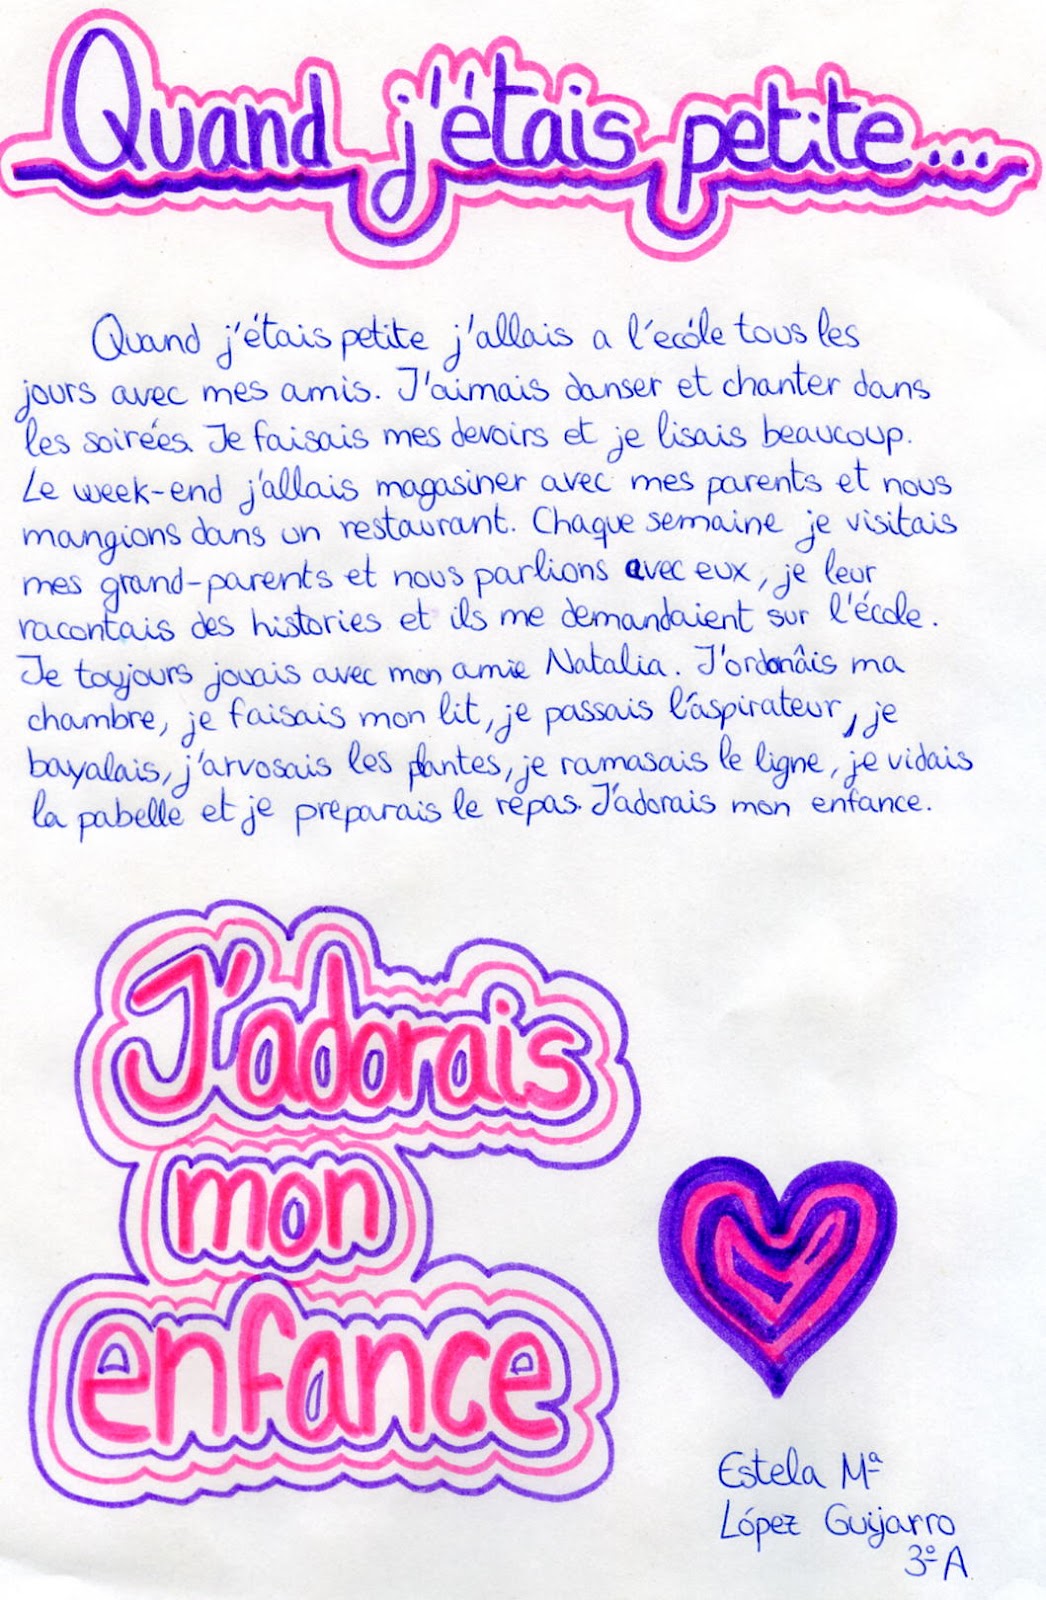 Quand j'étais petite...
Quand j'étais petite j'allais a l'ecóle tous les
jours avec mes amis. J'aimais danser et chanter dans
les soirées. Je faisais mes devoirs et je lisais beaucoup.
Le week-end j'allais magasiner avec mes parents et nous
mangions dans un restaurant. Chaque semaine je visitais
mes grand-parents et nous parlions avec eux, je leur
racontais des histories et ils me demandaient sur l'école.
Je toujours jouais avec mon amie Natalia. J'ordonâis ma
chambre, je faisais mon lit, je passais l'aspirateur, je
bayalais, j'arvosais les plantes, je ramasais le ligne, je vidais
la pabelle et je preparais le repas. J'adorais mon enfance.
J'adorais
mon
enfance
Estela Mª
López Guijarro
3º A